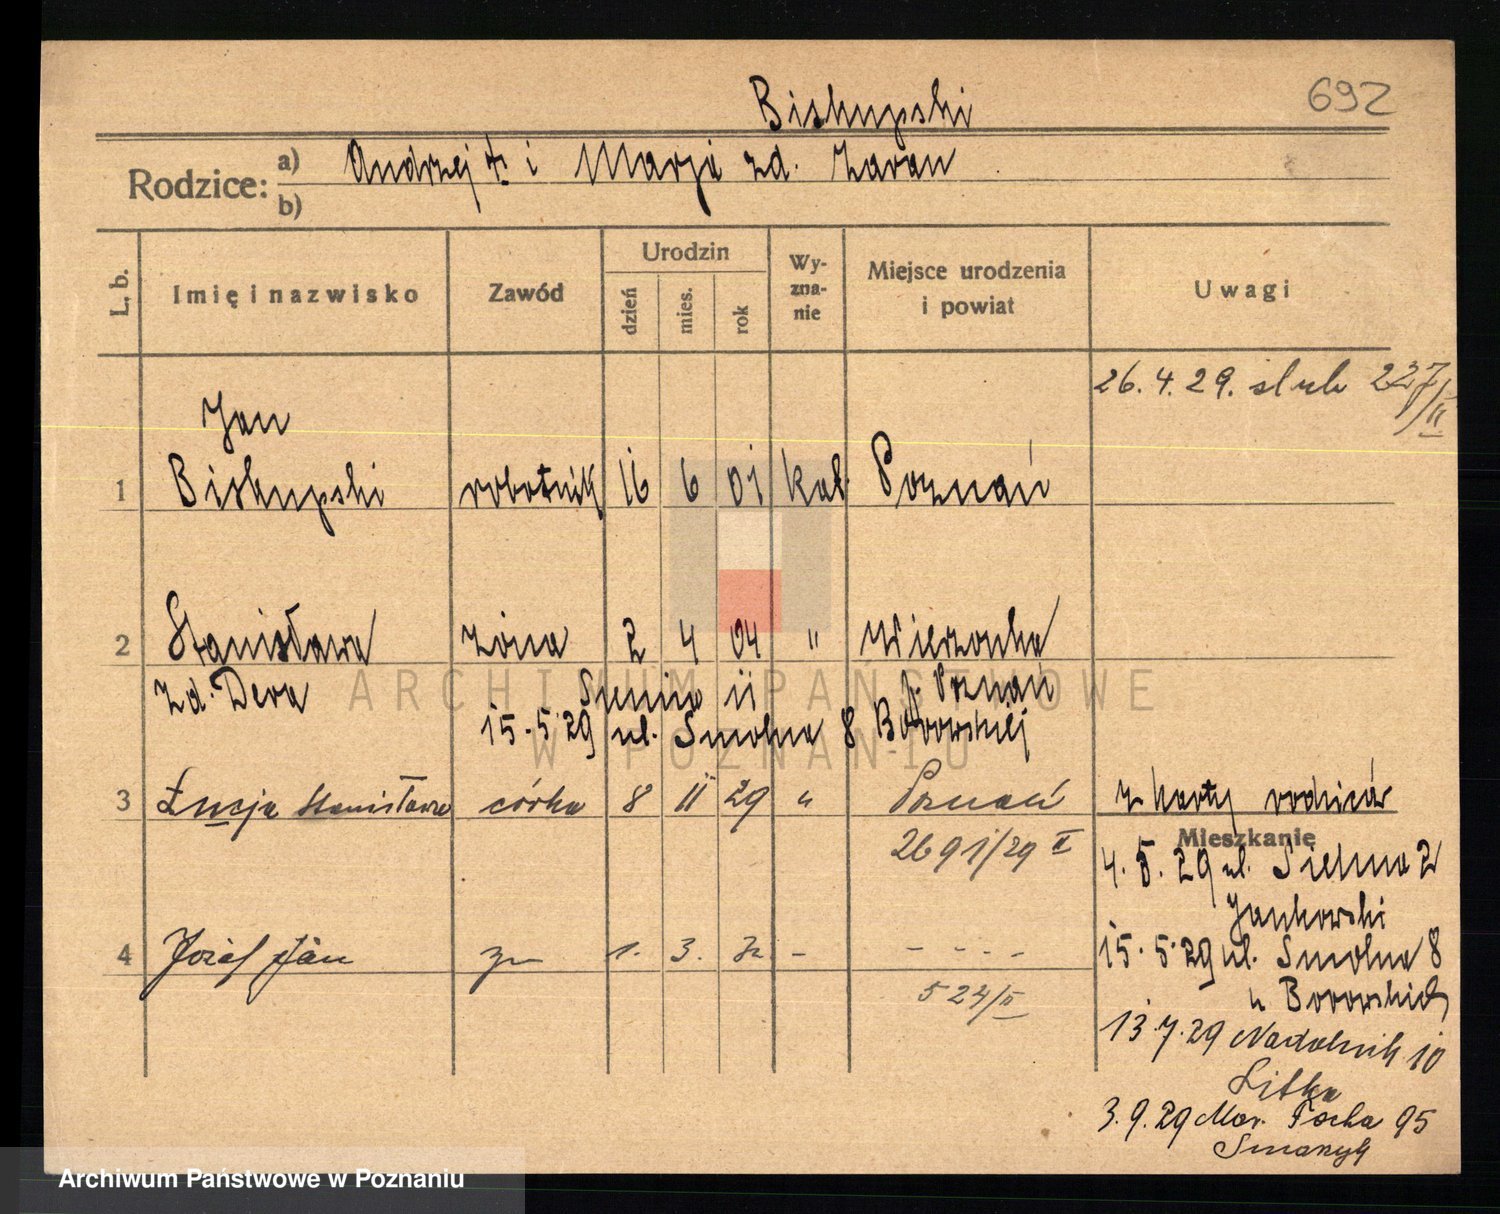 692
Biskupski
Rodzice: a) Andrzej + i Marja zd. Zaran
b)
L. b. Imię i nazwisko Zawód Urodzin dzień mies. rok Wyznanie Miejsce urodzenia i powiat Uwagi
26.4.29. ślub 227/II
Jan
1 Biskupski robotnik 16 6 01 kat. Poznań
2 Stanisława żona 2 4 04 " Wierzonka
zd. Dera p. Poznań
15.5.29 ul. Smolna 8 Borowskiej
3 Łucja Stanisława córka 8 11 29 " Poznań z karty rodziców
2691/29 II
Mieszkanie
4.5.29 ul. Sielska 2
Jankowski
4 Józef Jan 1. 3. - - - -
15.5.29 ul. Smolna 8
524/II
u Borowskiej
13.7.29 Nadolnik 10
Litka
3.9.29 Mar. Focha 95
ARCHIWUM PAŃSTWOWE
W POZNANIU
Archiwum Państwowe w Poznaniu